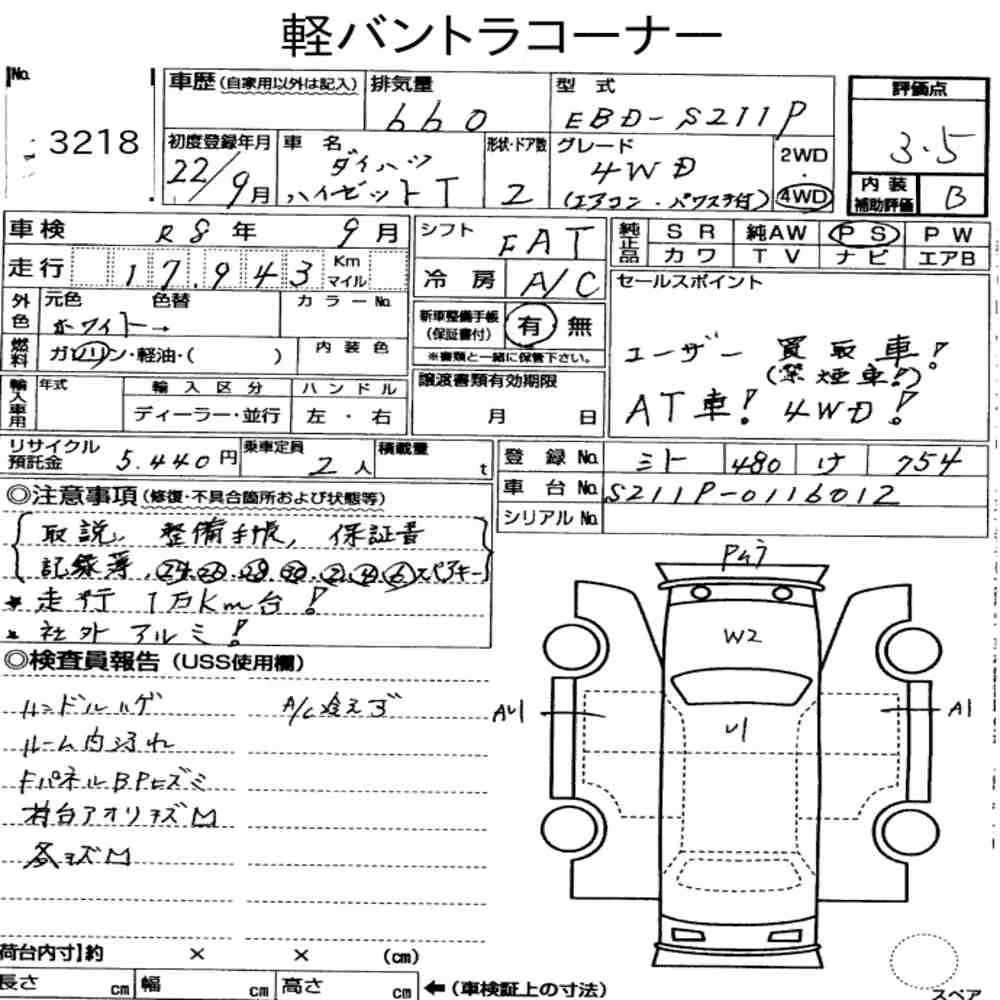 軽バントラコーナー
No. 3218
車歴(自家用以外は記入)
排気量 660
型式 EBD-S211P
評価点 3.5
初度登録年月 22/9月
車名 ダイハツ ハイゼットT
形状・ドア数 2
グレード 4WD (エアコン・パワステ付)
2WD 4WD
内装補助評価 B
車検 R8年 9月
シフト FAT
純正品 SR 純AW PS PW
カワ TV ナビ エアB
走行 17,943 Km マイル
冷房 A/C
セールスポイント
外色 元色 色替 カラーNo.
ホワイト→
新車整備手帳(保証書付) 有 無
※書類と一緒に保管下さい。
ユーザー買取車!
(禁煙車!)。
AT車! 4WD!
燃料 ガソリン・軽油・( ) 内装色
輸入車用 年式 輸入区分 ハンドル
ディーラー・並行 左・右
譲渡書類有効期限
月 日
リサイクル預託金 5,440円
乗車定員 2人
積載量 t
登録No. ミト 480 け 754
車台No. S211P-0116012
シリアルNo.
◎注意事項(修復・不具合箇所および状態等)
取説、整備手帳、保証書
記録簿、24.26.28.30.2.4.6 スペアキー
* 走行1万Km台!
* 社外アルミ!
◎検査員報告(USS使用欄)
ハンドルハゲ A/C冷えず
ルーム内汚れ
FパネルB.P.ヒズミ
荷台アオリキズM
各キズM
W2
U1
AU1
A1
荷台内寸】約 × × (cm)
長さ cm 幅 cm 高さ cm ←(車検証上の寸法)
スペア